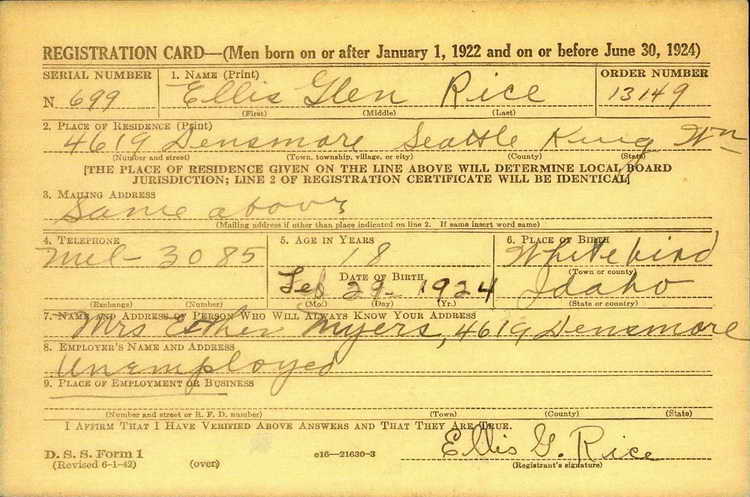 REGISTRATION CARD—(Men born on or after January 1, 1922 and on or before June 30, 1924)
SERIAL NUMBER 1. NAME (Print) ORDER NUMBER
N 699 Ellis Glen Rice 13149
(First) (Middle) (Last)
2. PLACE OF RESIDENCE (Print)
4619 Densmore Seattle King Wn
(Number and street) (Town, township, village, or city) (County) (State)
[THE PLACE OF RESIDENCE GIVEN ON THE LINE ABOVE WILL DETERMINE LOCAL BOARD
JURISDICTION; LINE 2 OF REGISTRATION CERTIFICATE WILL BE IDENTICAL]
3. MAILING ADDRESS
Same above
(Mailing address if other than place indicated on line 2. If same insert word same)
4. TELEPHONE 5. AGE IN YEARS 6. PLACE OF BIRTH
Mel- 3085 18 Whitebird
DATE OF BIRTH (Town or county)
Feb 29- 1924 Idaho
(Exchange) (Number) (Mo.) (Day) (Yr.) (State or country)
7. NAME AND ADDRESS OF PERSON WHO WILL ALWAYS KNOW YOUR ADDRESS
Mrs Esther Myers, 4619 Densmore
8. EMPLOYER'S NAME AND ADDRESS
Unemployed
9. PLACE OF EMPLOYMENT OR BUSINESS
(Number and street or R. F. D. number) (Town) (County) (State)
I AFFIRM THAT I HAVE VERIFIED ABOVE ANSWERS AND THAT THEY ARE TRUE.
Ellis G. Rice
D. S. S. Form 1 e16—21630-3 (Registrant's signature)
(Revised 6-1-42) (over)